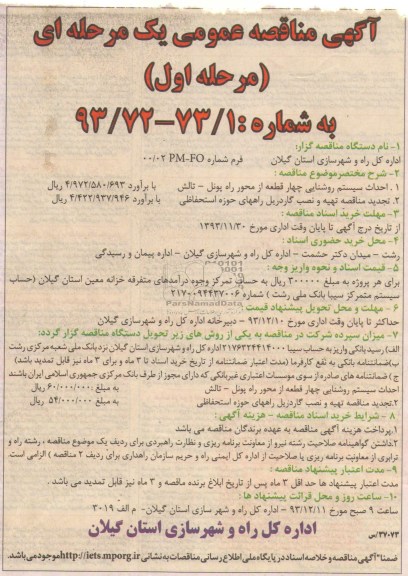 آگهی مناقصه عمومی یک مرحله ای
(مرحله اول)
به شماره :۷۳/۱-۹۳/۷۲
۱- نام دستگاه مناقصه گزار:
اداره کل راه و شهرسازی استان گیلان فرم شماره PM-FO ۰۰/۰۲
۲- شرح مختصرموضوع مناقصه :
۱. احداث سیستم روشنایی چهار قطعه از محور راه پونل - تالش با برآورد ۴/۹۷۲/۵۸۰/۶۹۳ ریال
۲. تجدید مناقصه تهیه و نصب گاردریل راههای حوزه استحفاظی با برآورد ۴/۴۲۲/۹۳۷/۹۴۶ ریال
۳- مهلت خرید اسناد مناقصه :
از تاریخ درج آگهی تا پایان وقت اداری مورخ ۱۳۹۳/۱۱/۳۰
۴- محل خرید حضوری اسناد :
رشت - میدان دکتر حشمت - اداره کل راه و شهرسازی گیلان - اداره پیمان و رسیدگی
۵- قیمت اسناد و نحوه واریز وجه :
برای هر پروژه به مبلغ ۳۰۰۰۰۰ ریال به حساب تمرکز وجوه درآمدهای متفرقه خزانه معین استان گیلان (حساب
سیستم متمرکز سیبا بانک ملی رشت ) شماره ۲۱۷۰۰۹۴۴۳۷۰۰۶
۶- مهلت و محل تحویل پیشنهاد قیمت :
حداکثر تا پایان وقت اداری مورخ ۹۳/۱۲/۱۰ - دبیرخانه اداره کل راه و شهرسازی گیلان
۷- میزان سپرده شرکت در مناقصه به یکی از روش های زیر تحویل دستگاه مناقصه گزار گردد:
الف) رسید بانکی واریز به حساب سیبا ۲۱۷۶۲۲۴۴۱۴۰۰۰ اداره کل راه و شهرسازی استان گیلان نزد بانک ملی شعبه مرکزی رشت
ب)ضمانتنامه بانکی به نفع کارفرما (مدت اعتبار ضمانتنامه از تاریخ خرید اسناد تا ۳ ماه و برای ۳ ماه نیز قابل تمدید باشد)
ج) ضمانتنامه های صادره از سوی موسسات اعتباری غیربانکی که دارای مجوز از طرف بانک مرکزی جمهوری اسلامی ایران باشند
احداث سیستم روشنایی چهار قطعه از محور راه پونل - تالش به مبلغ ۶۰/۰۰۰/۰۰۰ ریال
۲.تجدید مناقصه تهیه و نصب گاردریل راههای حوزه استحفاظی به مبلغ ۵۴/۰۰۰/۰۰۰ ریال
۸ - شرایط خرید اسناد مناقصه - هزینه آگهی :
۱.پرداخت هزینه آگهی مناقصه به عهده برندگان مناقصه می باشد
۲.داشتن گواهینامه صلاحیت رشته نیرو از معاونت برنامه ریزی و نظارت راهبردی برای ردیف یک موضوع مناقصه ، رشته راه و
ترابری از معاونت برنامه ریزی یا صلاحیت از اداره کل ایمنی راه و حریم سازمان راهداری برای ردیف ۲ مناقصه ) الزامی است.
۹- مدت اعتبار پیشنهاد مناقصه :
مدت اعتبار پیشنهاد ها حد اقل ۳ ماه پس از تاریخ ابلاغ برنده مناقصه و ۳ ماه نیز قابل تمدید می باشد .
۱۰- ساعت روز و محل قرائت پیشنهاد ها :
ساعت ۹ صبح مورخ ۹۳/۱۲/۱۱ - اداره کل راه و شهرسازی استان گیلان- م الف ۳۰۱۹
۳۷۰۷۳/س
اداره کل راه و شهرسازی استان گیلان
ضمنا"آگهی مناقصه و خلاصه اسناد در پایگاه ملی اطلاع رسانی مناقصات به نشانی http://iets.mporg.ir موجود می باشد.